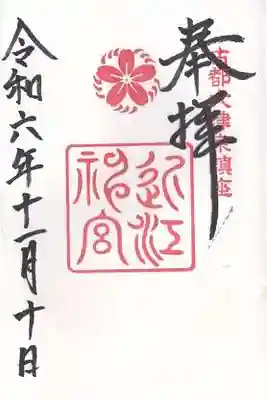 奉拝
古都大津京鎮座
近江
神宮
令和六年十一月十日